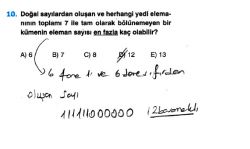 10. Doğal sayılardan oluşan ve herhangi yedi elema-
nının toplamı 7 ile tam olarak bölünemeyen bir
kümenin eleman sayısı en fazla kaç olabilir?
A) 6 B) 7 C) 8 D) 12 E) 13
6 tane 1 ve 6 tane sıfırdan
oluşan sayı
111111000000 12 basamaklı